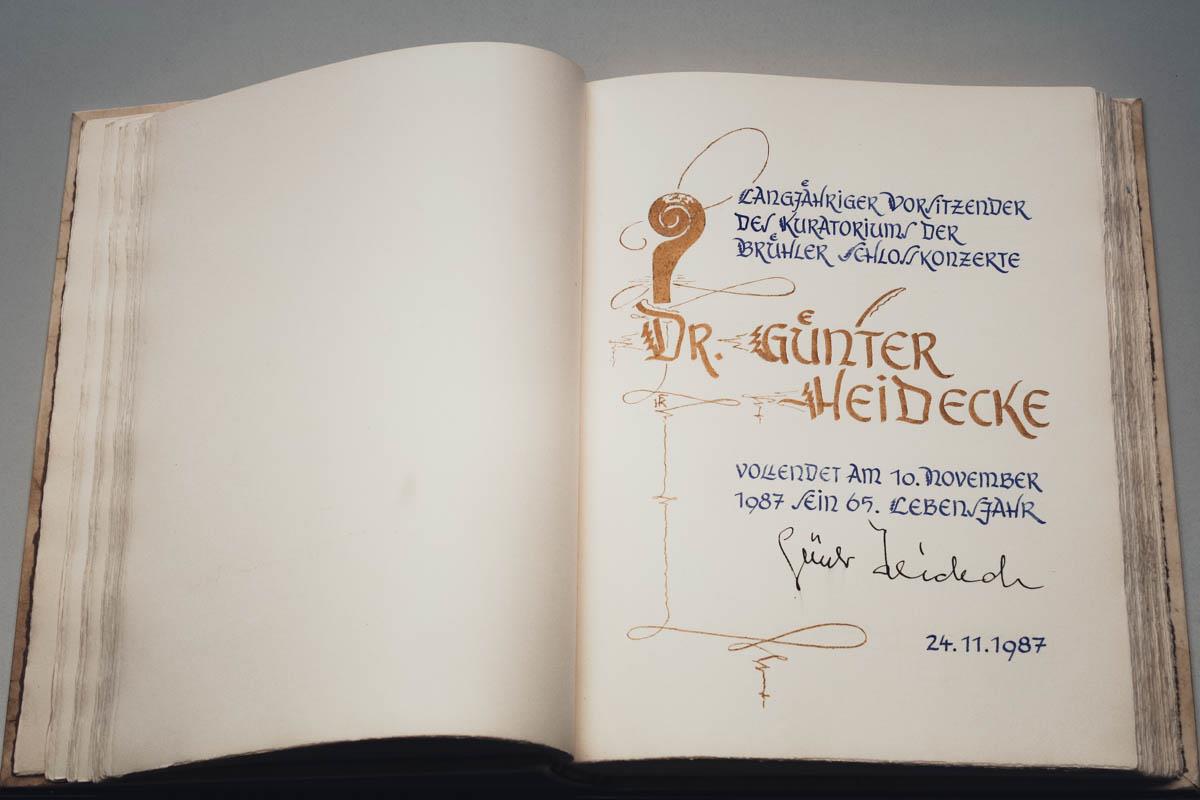 LANGJÄHRIGER VORSITZENDER
DES KURATORIUMS DER
BRÜHLER SCHLOSSKONZERTE
DR. GÜNTER
HEIDECKE
VOLLENDET AM 10. NOVEMBER
1987 SEIN 65. LEBENSJAHR
Günter Heidecke
24.11.1987